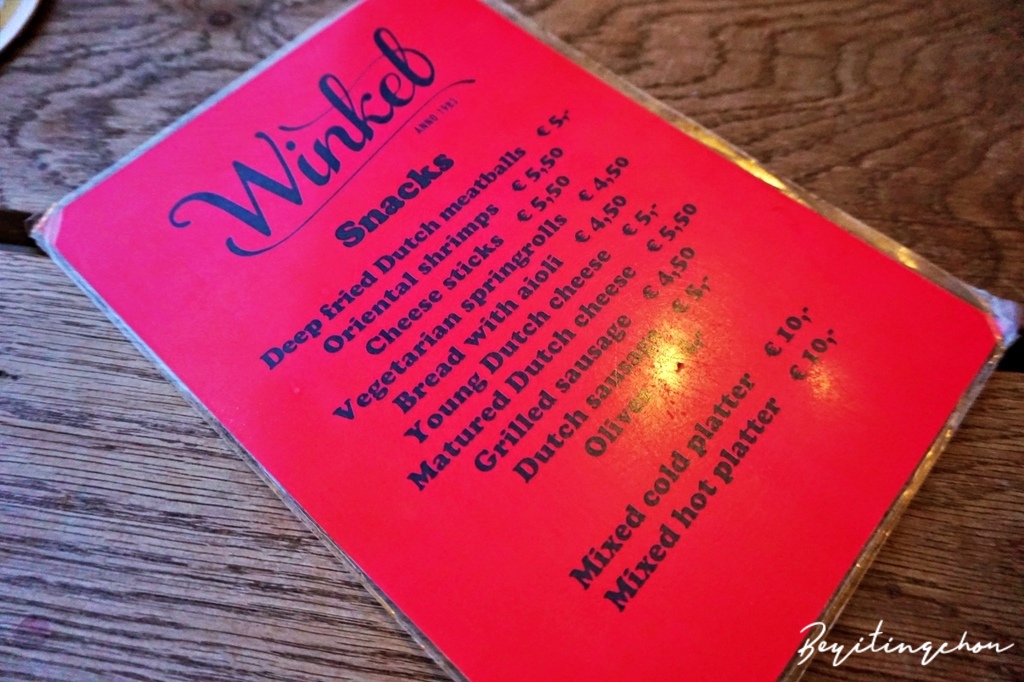 Winkel
ANNO
Snacks
Deep fried Dutch meatballs € 5,-
Oriental shrimps € 5,50
Cheese sticks € 5,50
Vegetarian springrolls € 4,50
Bread with aioli € 4,50
Young Dutch cheese € 5,-
Matured Dutch cheese € 5,50
Grilled sausage € 4,50
Dutch sausage € 5,-
Olives
Mixed cold platter € 10,-
Mixed hot platter € 10,-
Beyitingchou